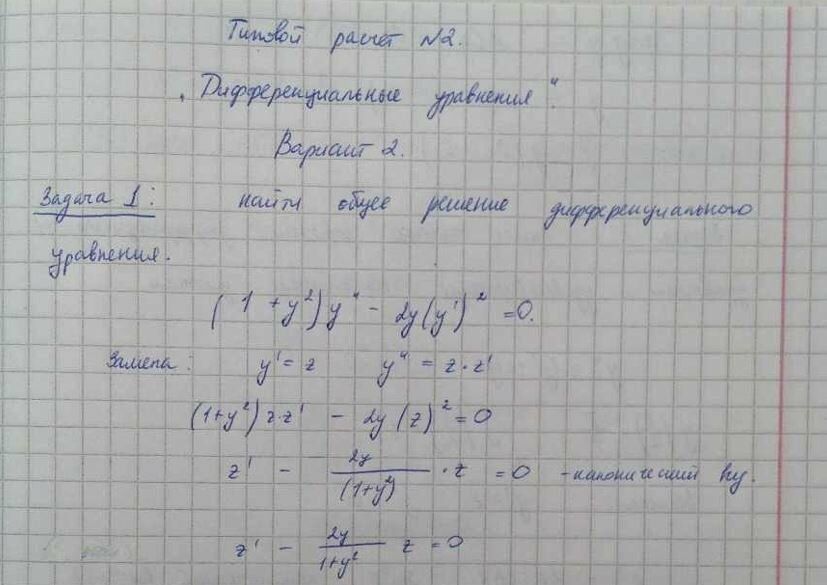 Типовой расчет №2.
„Дифференциальные уравнения“.
Вариант 2.
Задача 1: найти общее решение дифференциального
уравнения.
(1 + y²)y'' - 2y(y')² = 0.
Замена: y' = z y'' = z · z'
(1+y²) z·z' - 2y(z)² = 0
z' - 2y/(1+y²) · z = 0 - канонический
z' - 2y/1+y² z = 0